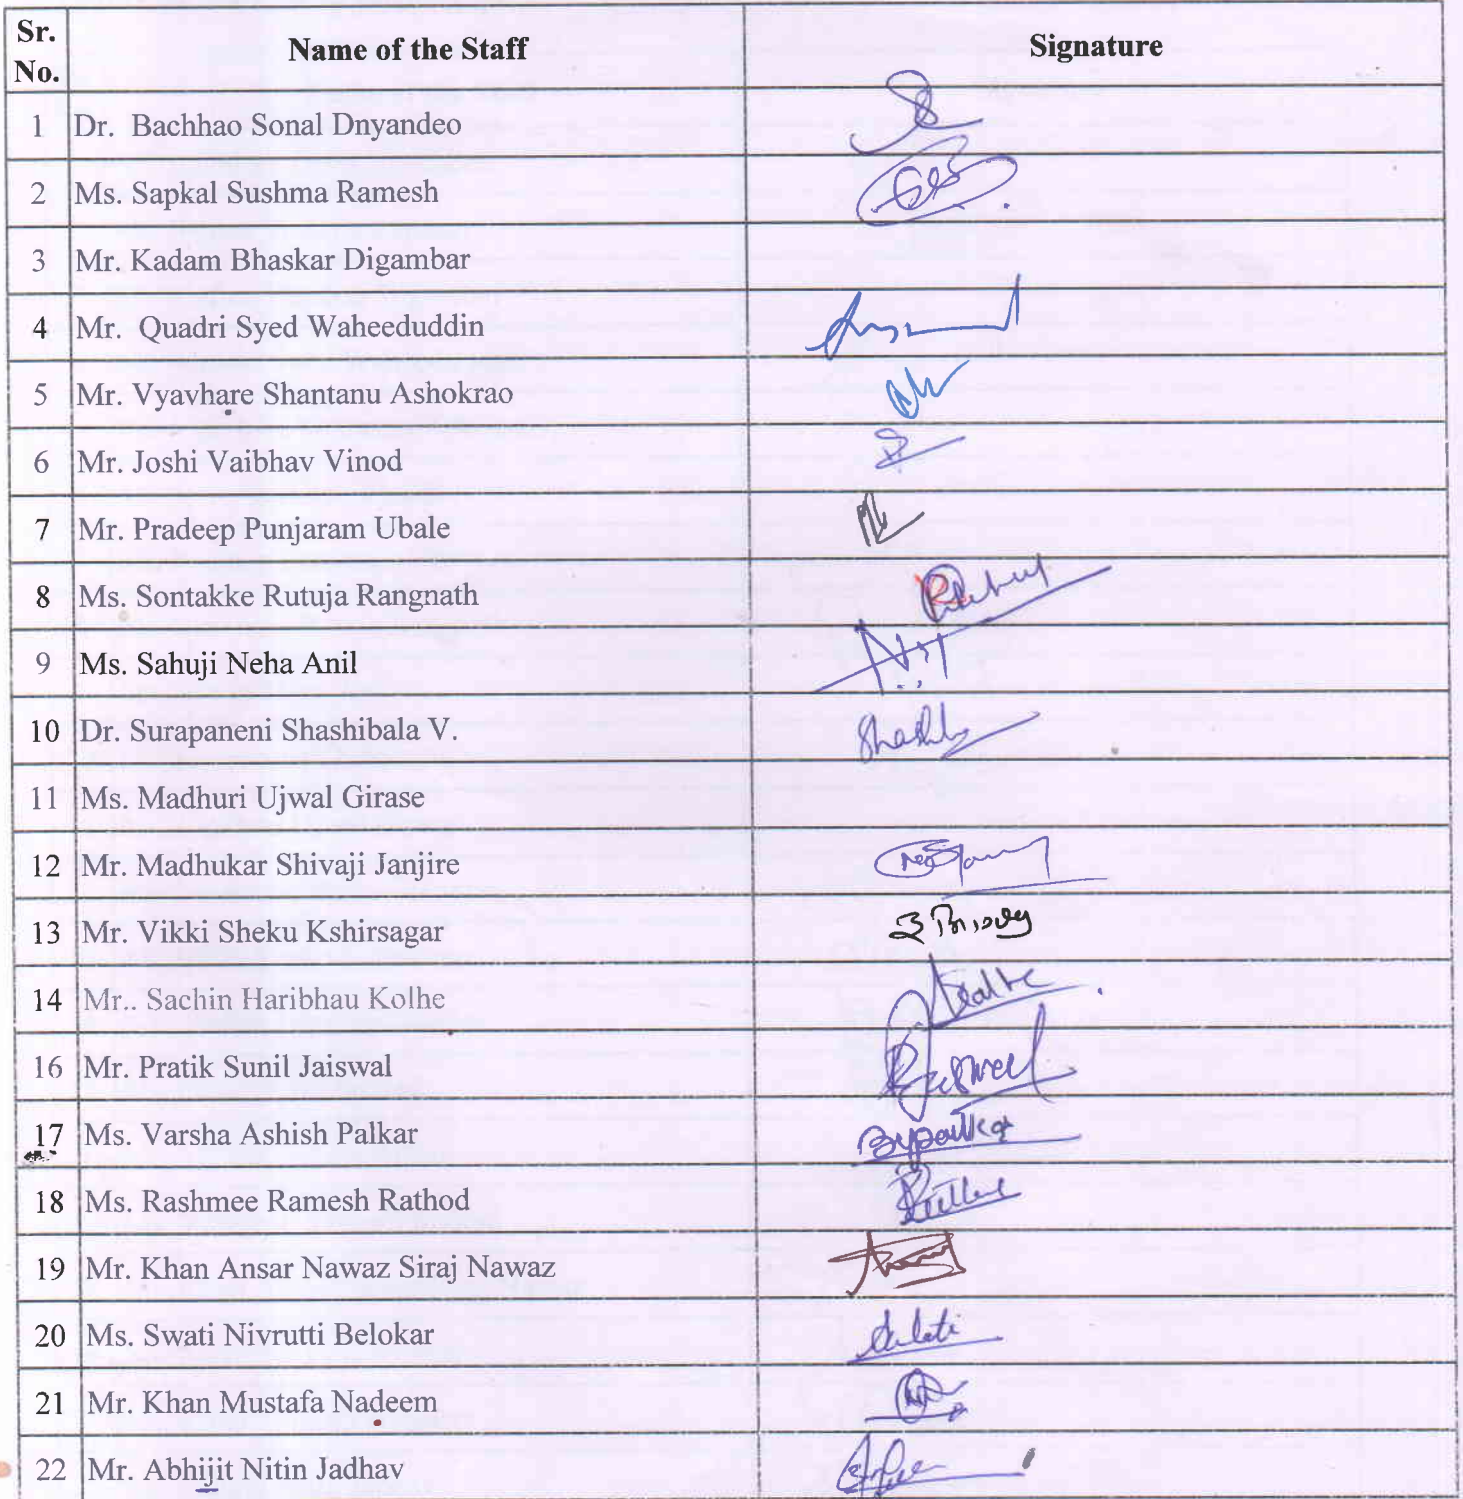 Sr. No. Name of the Staff Signature
1 Dr. Bachhao Sonal Dnyandeo
2 Ms. Sapkal Sushma Ramesh
3 Mr. Kadam Bhaskar Digambar
4 Mr. Quadri Syed Waheeduddin
5 Mr. Vyavhare Shantanu Ashokrao
6 Mr. Joshi Vaibhav Vinod
7 Mr. Pradeep Punjaram Ubale
8 Ms. Sontakke Rutuja Rangnath
9 Ms. Sahuji Neha Anil
10 Dr. Surapaneni Shashibala V.
11 Ms. Madhuri Ujwal Girase
12 Mr. Madhukar Shivaji Janjire
13 Mr. Vikki Sheku Kshirsagar
14 Mr.. Sachin Haribhau Kolhe
16 Mr. Pratik Sunil Jaiswal
17 Ms. Varsha Ashish Palkar
18 Ms. Rashmee Ramesh Rathod
19 Mr. Khan Ansar Nawaz Siraj Nawaz
20 Ms. Swati Nivrutti Belokar
21 Mr. Khan Mustafa Nadeem
22 Mr. Abhijit Nitin Jadhav